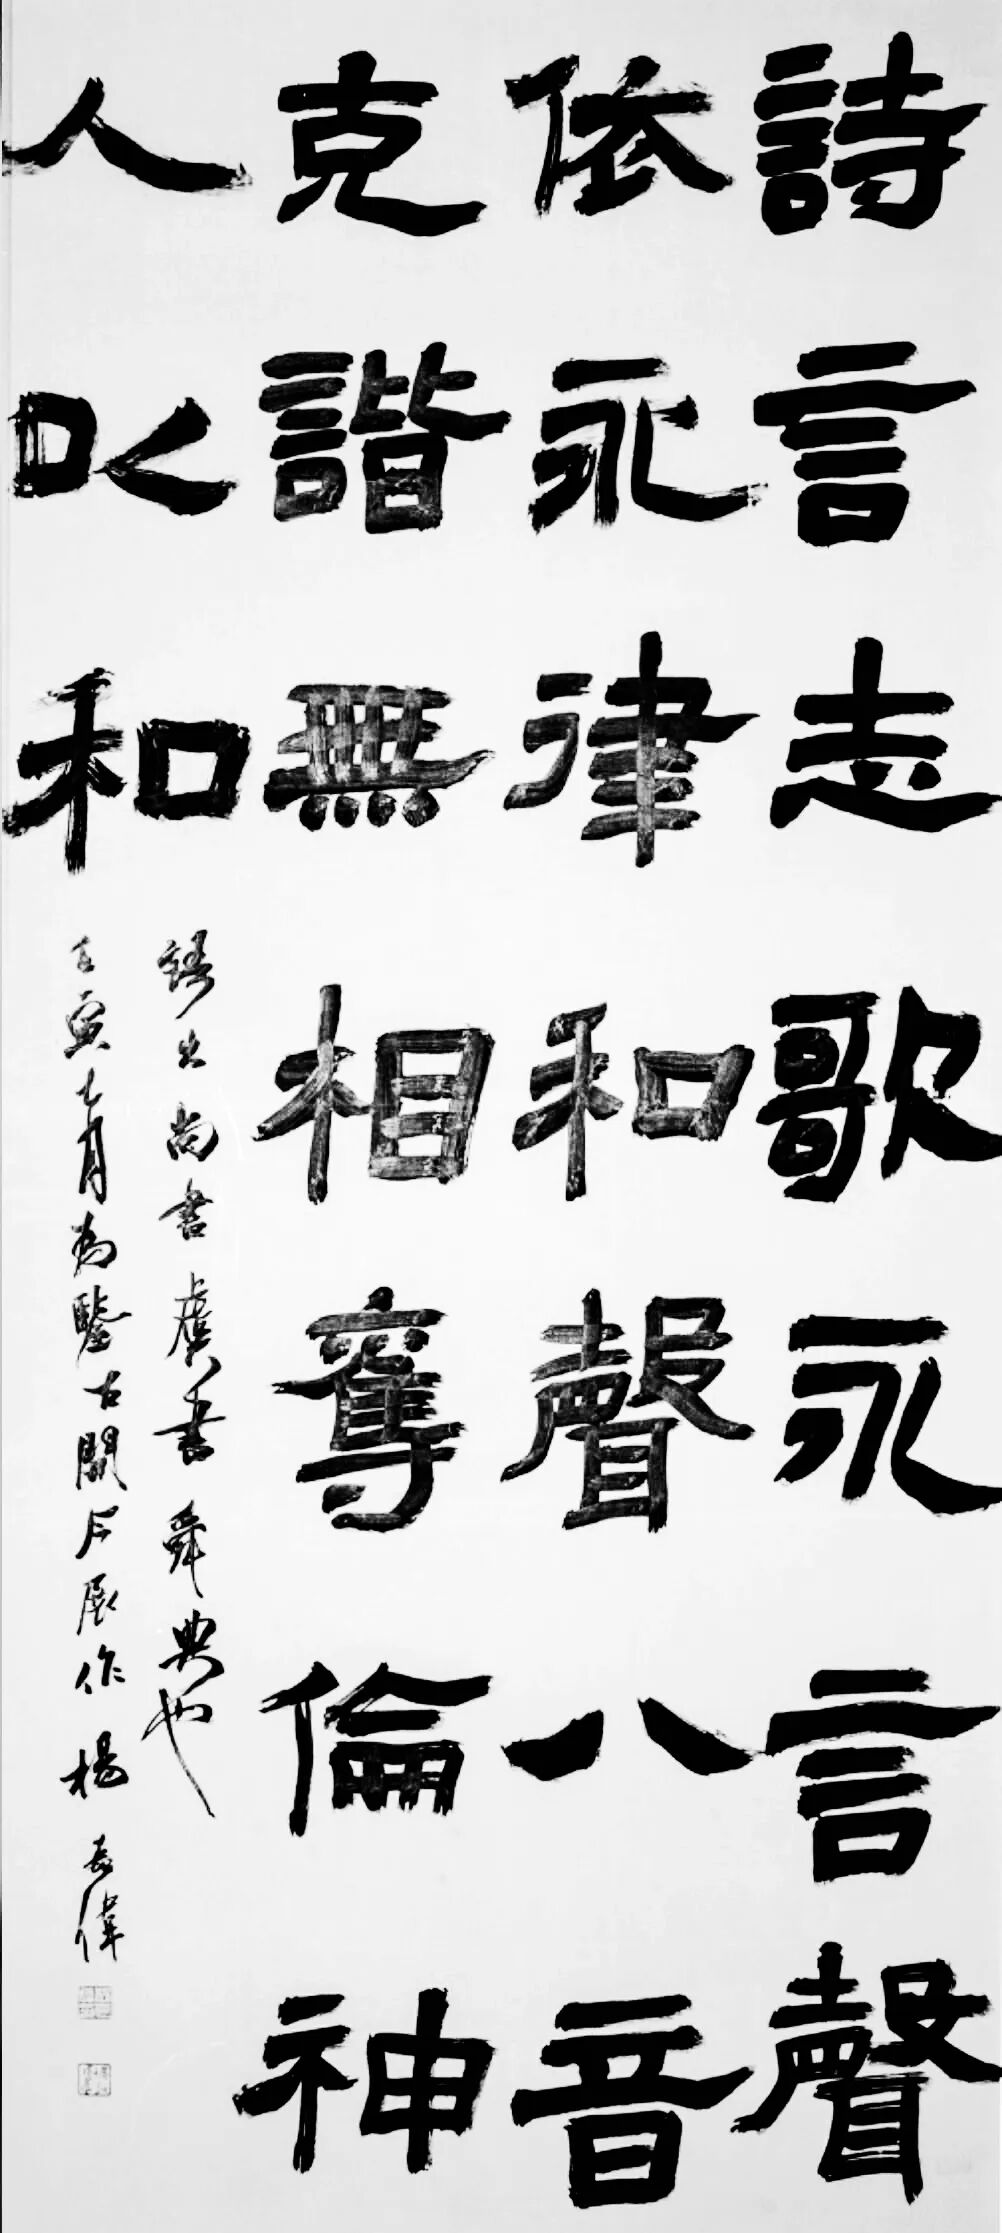 詩言志歌永言聲
依永律和聲八音
克諧無相奪倫神
人㕥和
語出尚書虞書舜典也
壬寅七月為鑒古開今展作楊長偉